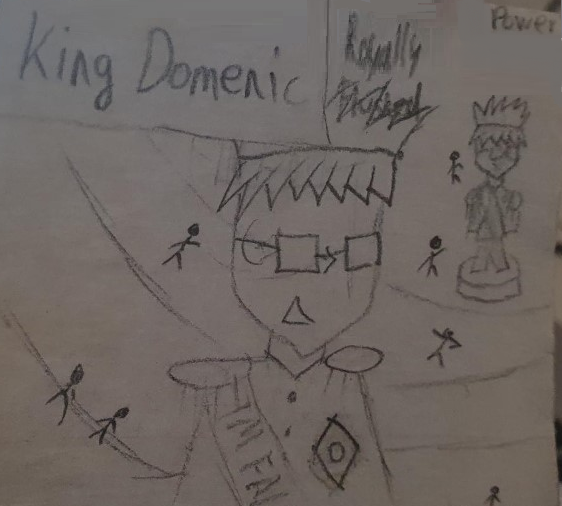 King Domenic
Royally
Power
I'M FA